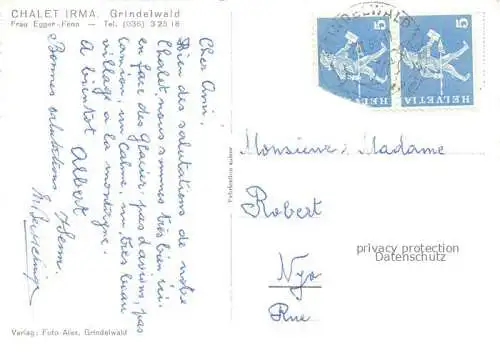 CHALET IRMA, Grindelwald
Frau Egger-Fenn - Tel. (036) 3 25 18
Cher Ami,
Bien des salutations de notre
Chalet, nous sommes très bien ici.
en face des Glacier, pas d'avions, pas
camion, un calme, un très beau
village à la montagne.
A bientôt Albert
Bonnes salutations
Verlag: Foto Alex, Grindelwald
Fabrication suisse
HELVETIA 5
HELVETIA 5
GRINDELWALD
Monsieur, Madame
Robert
Nyo
Rue
privacy protection
Datenschutz